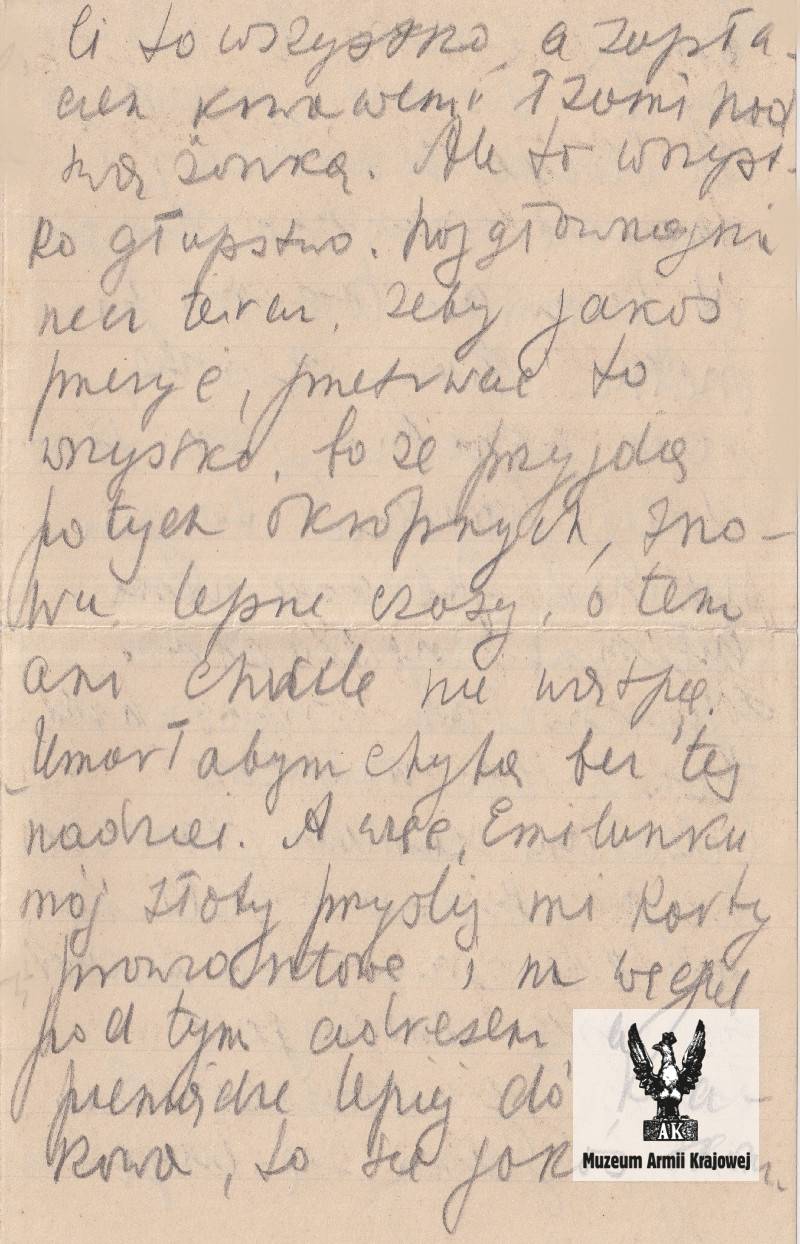 Ci to wszystko, a zapła-
cisz krwawemi łzami nad
swą żonką. Ale to wszyst-
ko głupstwo. Najgłówniejsza
rzecz teraz, żeby jakoś
przeżyć, przetrwać to
wszystko, bo że przyjdą
po tych okropnych, zno-
wu lepsze czasy, o tem
ani chwilę nie wątpię.
Umarłabym chyba bez tej
nadziei. A więc, Emilunku
mój złoty przyślij mi karty
prowiantowe i na węgiel
pod tym adresem a
pieniądze lepiej do Kra-
kowa, to się jakoś
AK
Muzeum Armii Krajowej